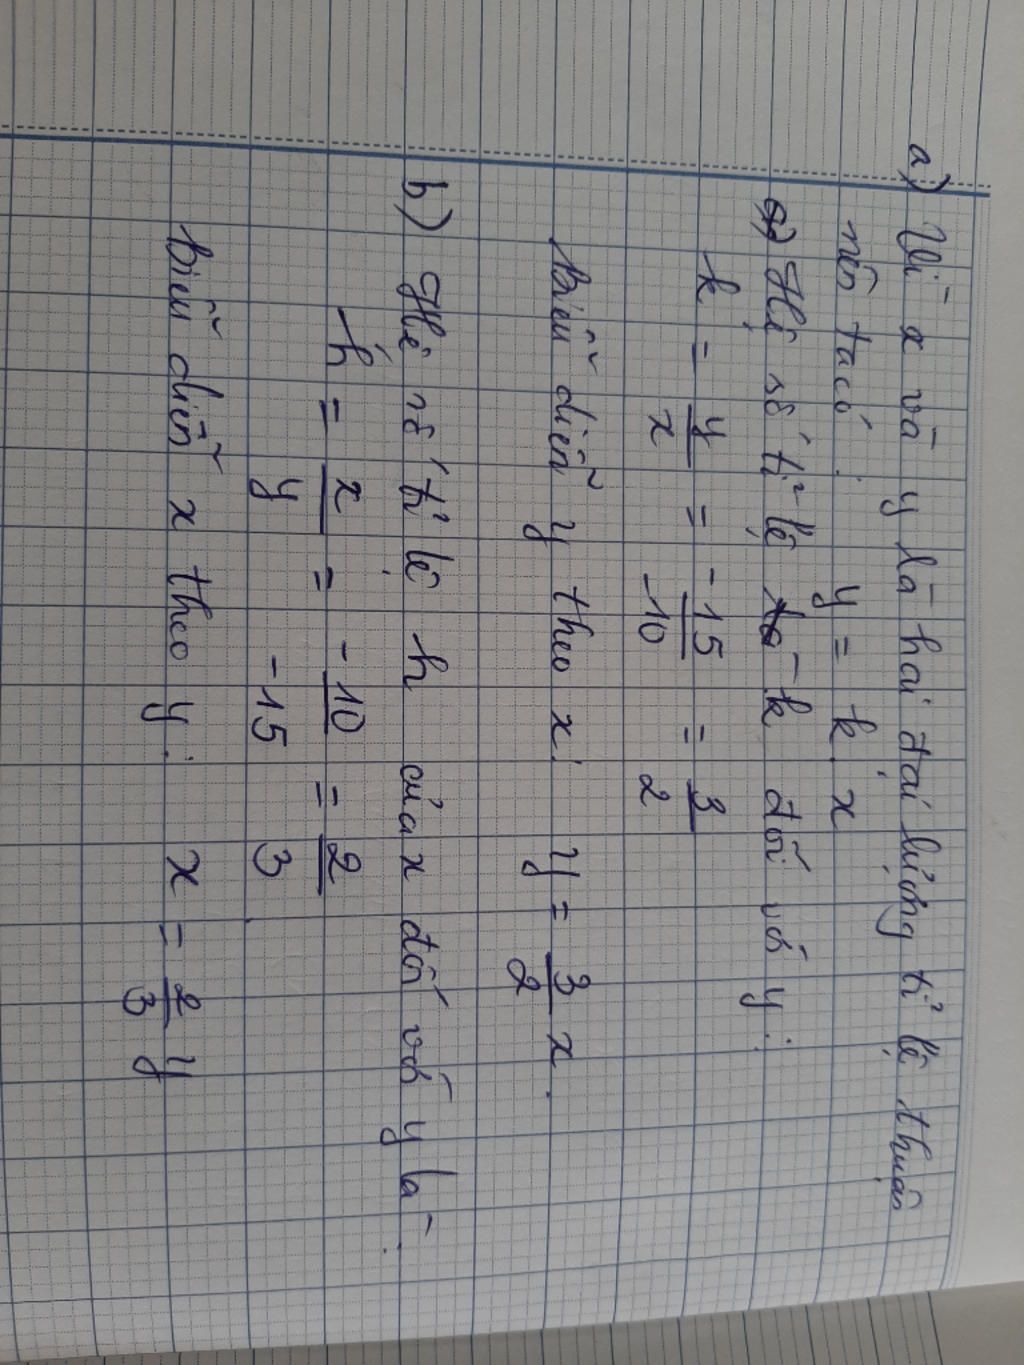 a) Vì x và y là hai đại lượng tỉ lệ thuận
nên ta có: y = k.x
Hệ số tỉ lệ k đối với y:
k = y/x = -15/-10 = 3/2
biểu diễn y theo x: y = 3/2 x.
b) Hệ số tỉ lệ h của x đối với y là:
h = x/y = -10/-15 = 2/3.
biểu diễn x theo y: x = 2/3 y